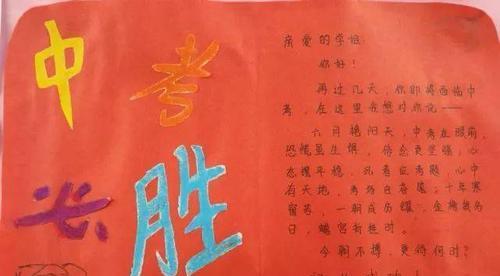 中考
必胜
亲爱的学姐:
你好!
再过几天,你即将面临中
考,在这里我想对你说——
六月艳阳天,中考在眼前,
恐慌虽生惧,信念更坚强,心
态摆平稳,应考题,心中
有天地,考场自奋腾;十年寒
窗苦,一朝成,金榜题名
日,蟾宫折桂时。
今朝不搏,更待何时?